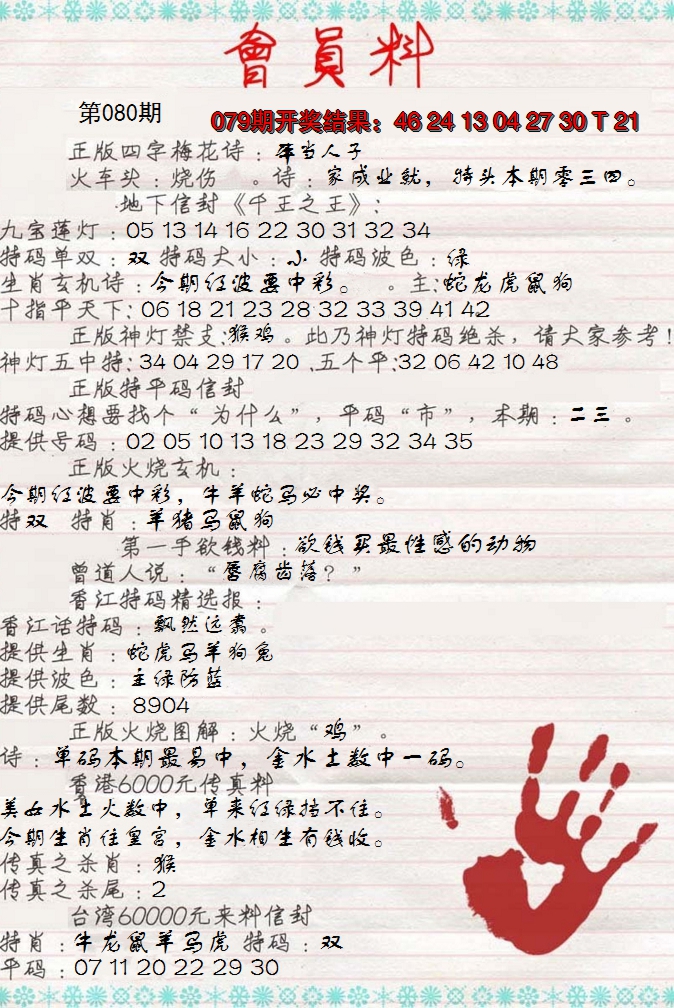 會員料
第080期
079期开奖结果：46 24 13 04 27 30 T 21
正版四字梅花诗：年当人子
火车头：烧伤 。诗：家成业就，特头本期零三四。
地下信封《千王之王》：
九宝莲灯：05 13 14 16 22 30 31 32 34
特码单双：双 特码大小：小 特码波色：绿
生肖玄机诗：今期红波要中彩。 。主：蛇龙虎鼠狗
十指平天下：06 18 21 23 28 32 33 39 41 42
正版神灯禁支：猴鸡。此乃神灯特码绝杀，请大家参考！
神灯五中特：34 04 29 17 20 .五个平：32 06 42 10 48
正版特平码信封
特码心想要找个“为什么”，平码“市”，本期：二三 。
提供号码：02 05 10 13 18 23 29 32 34 35
正版火烧玄机：
今期红波要中彩，牛羊蛇马必中奖。
特双 特肖：羊猪马鼠狗
第一手欲钱料：欲钱买最性感的动物
曾道人说：“唇腐齿落？”
香江特码精选报：
香江话特码：飘然远翥。
提供生肖：蛇虎马羊狗兔
提供波色：主绿防蓝
提供尾数：8904
正版火烧图解：火烧“鸡”。
诗：单码本期最易中，金水土数中一码。
香港6000元传真料
美女水土火数中，单来红绿挡不住。
今期生肖住皇宫，金水相生有钱收。
传真之杀肖：猴
传真之杀尾：2
台湾60000元来料信封
特肖：牛龙鼠羊马虎 特码：双
平码：07 11 20 22 29 30